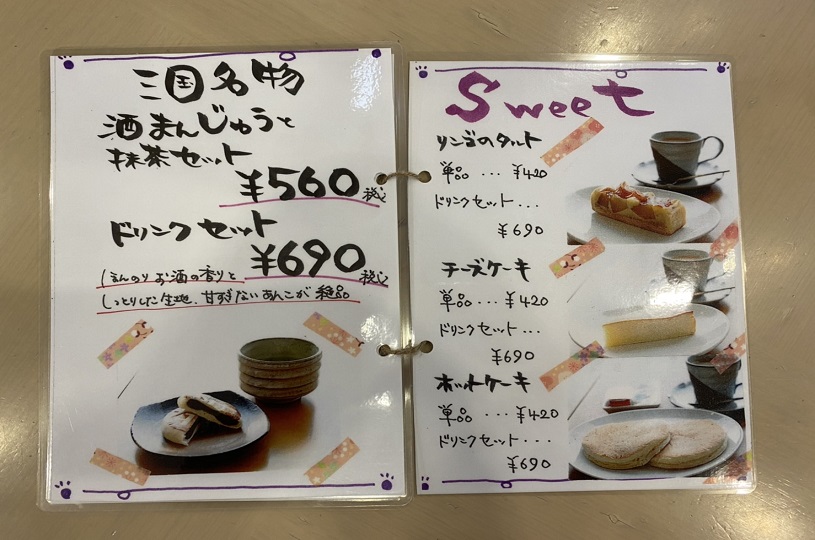 三国名物
酒まんじゅうと
抹茶セット
¥560税込
ドリンクセット
¥690税込
ほんのりお酒の香りと
しっとりした生地、甘すぎないあんこが絶品
Sweet
リンゴのタルト
単品...¥420
ドリンクセット...
¥690
チーズケーキ
単品...¥420
ドリンクセット...
¥690
ホットケーキ
単品...¥420
ドリンクセット...
¥690